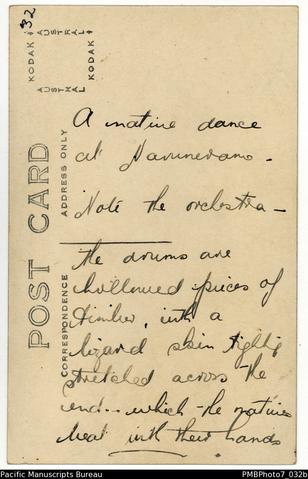 32
KODAK
AUSTRAL
KODAK
AUSTRAL
POST CARD
CORRESPONDENCE
ADDRESS ONLY
A native dance
at
Note the orchestra -
The drums are
hollowed pieces of
timber, with a
lizard skin tightly
stretched across the
end.. which the natives
beat with their hands
Pacific Manuscripts Bureau
PMBPhoto7_032b